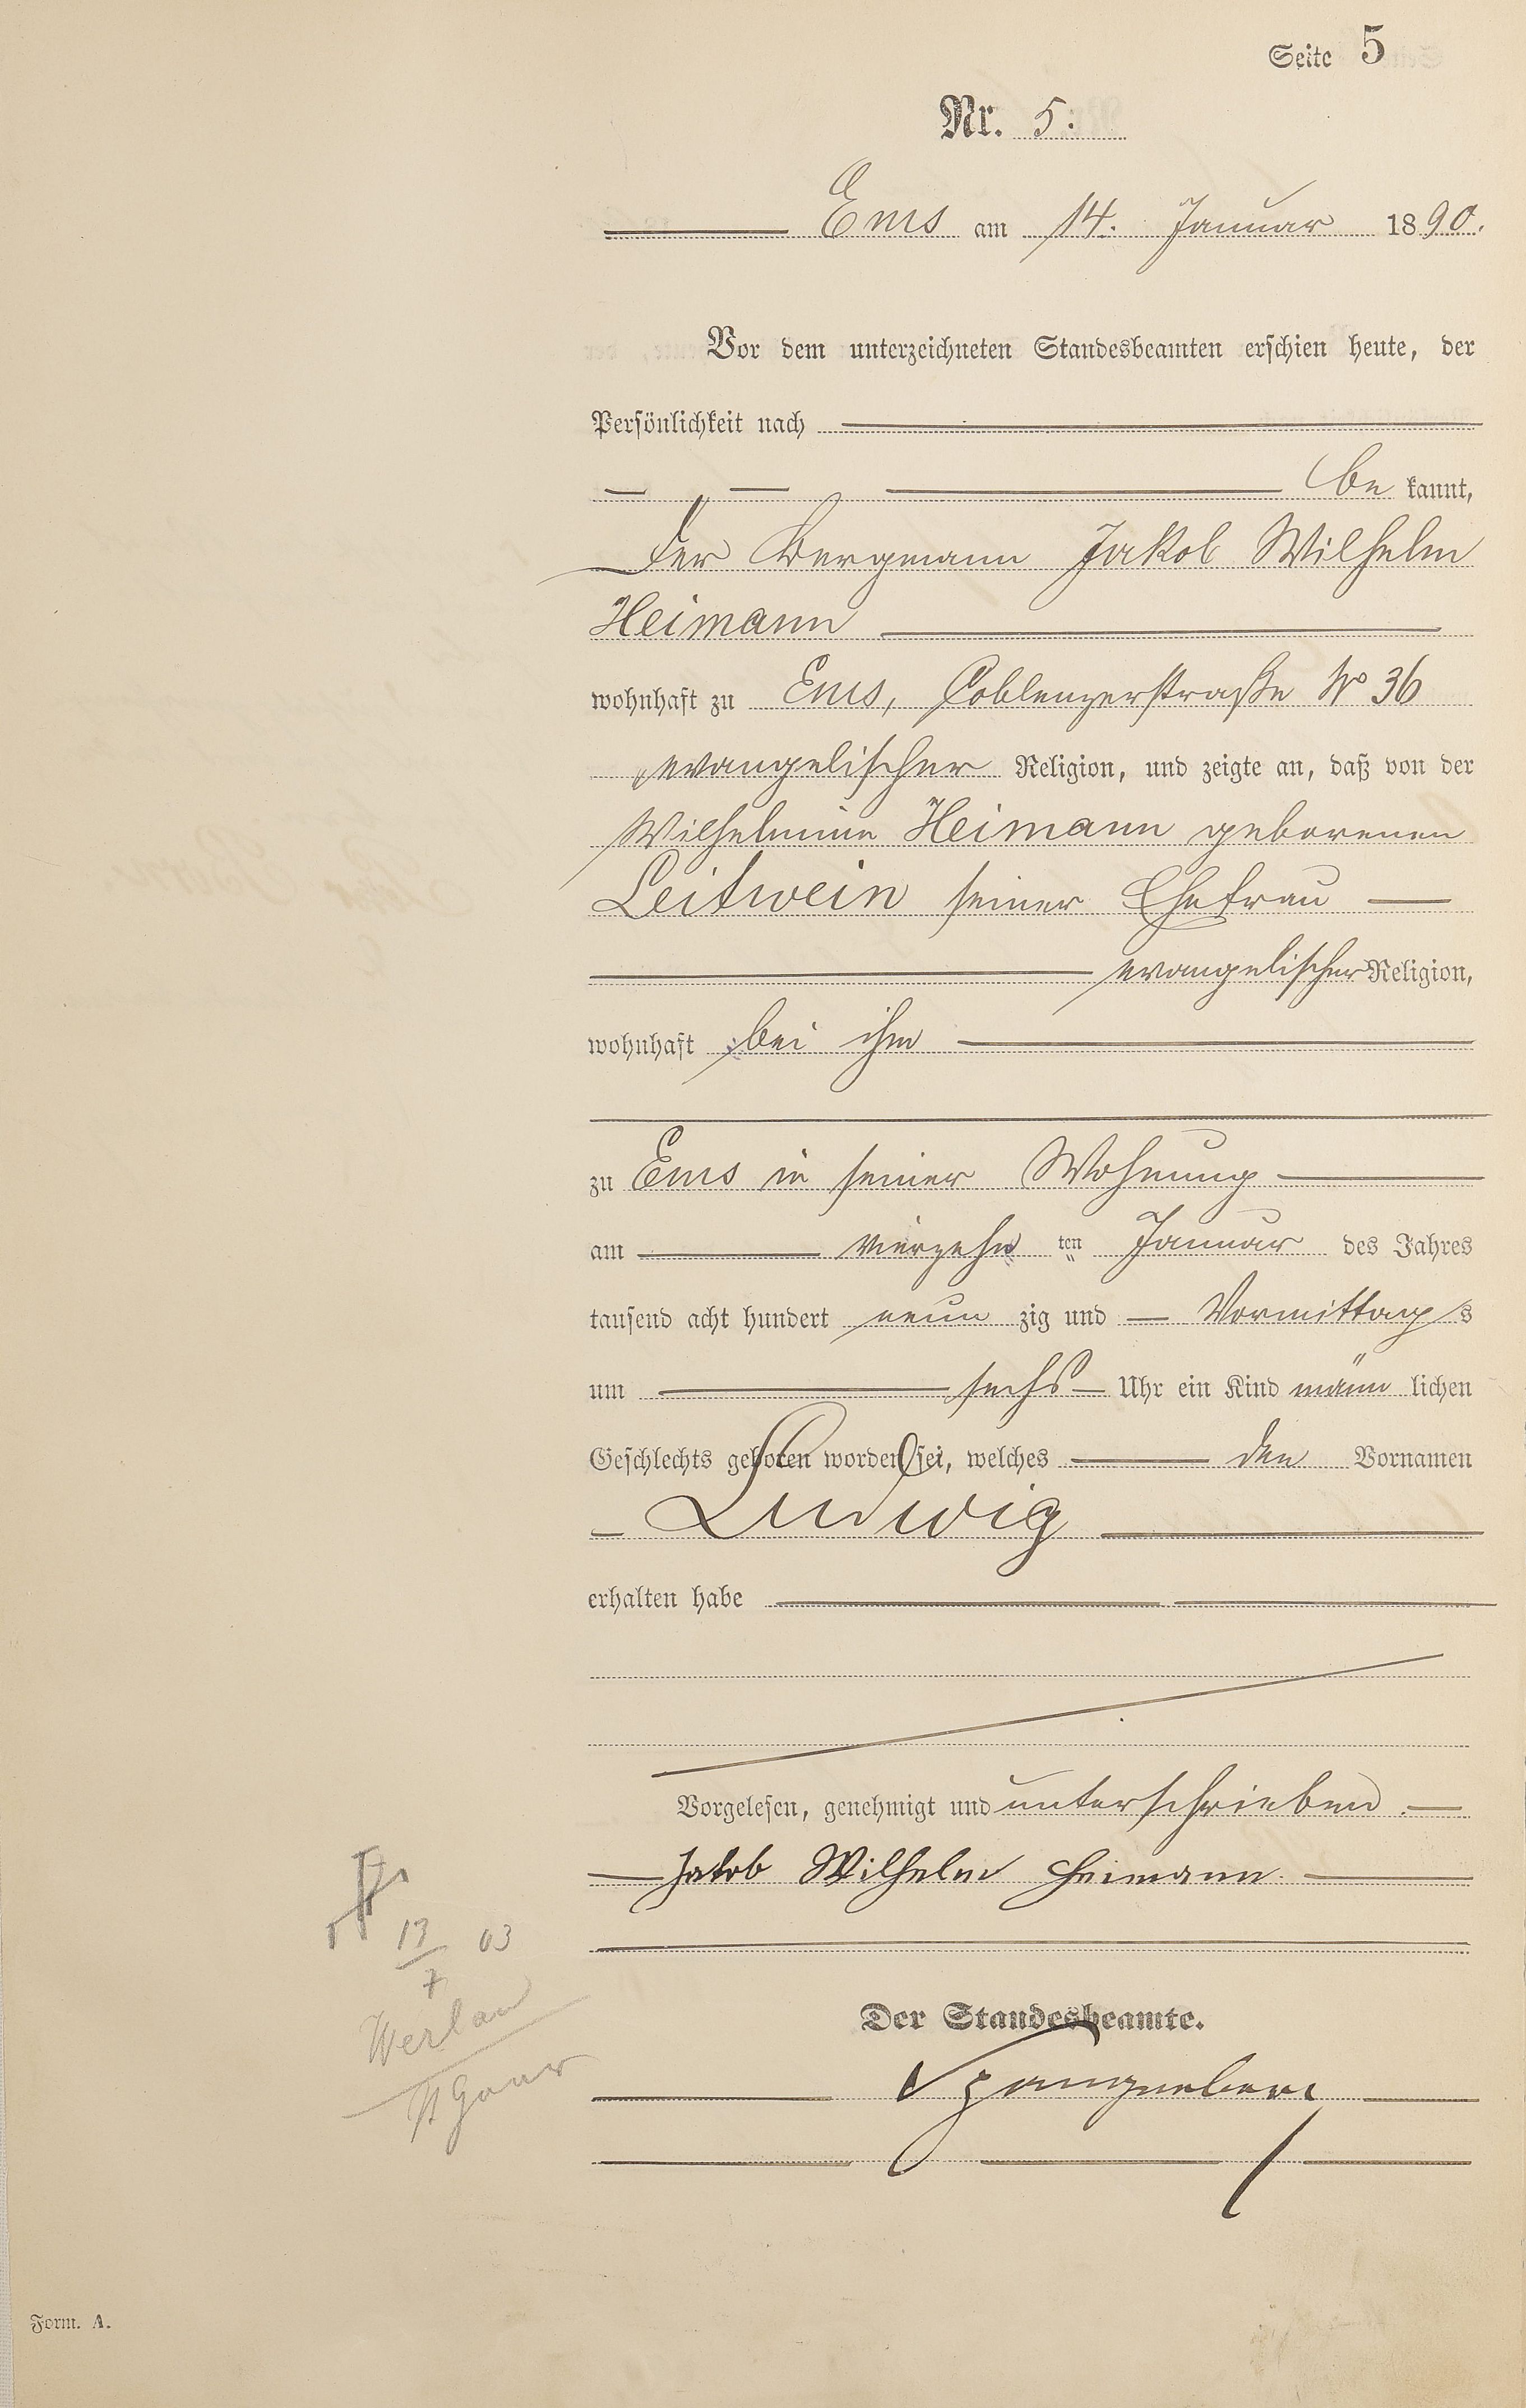 Seite 5
Nr. 5.
Ems am 14. Januar 1890.
Vor dem unterzeichneten Standesbeamten erschien heute, der
Persönlichkeit nach
be kannt,
der Bergmann Jakob Wilhelm
Heimann
wohnhaft zu Ems, Coblenzerstraße No 36
evangelischer Religion, und zeigte an, daß von der
Wilhelmine Heimann geborenen
Leitwein seiner Ehefrau
evangelischer Religion,
wohnhaft bei ihm
zu Ems in seiner Wohnung
am vierzehn ten Januar des Jahres
tausend acht hundert neun zig und Vormittags
um sechs Uhr ein Kind männ lichen
Geschlechts geboren worden sei, welches den Vornamen
Ludwig
erhalten habe
Vorgelesen, genehmigt und unterschrieben.
Jakob Wilhelm Heimann
13/7 03
Werlau
St Goar
Der Standesbeamte.
Form. A.